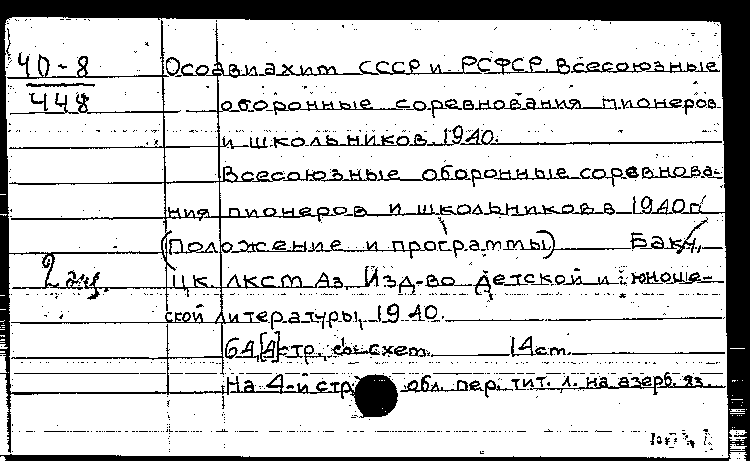 40-8
448
Осоавиахим СССР и РСФСР. Всесоюзные
оборонные соревнования пионеров
и школьников. 1940.
Всесоюзные оборонные соревнова-
ния пионеров и школьников в 1940 г.
(Положение и программы) Баку,
2 экз.
ЦК. ЛКСМ Аз. Изд-во детской и юноше-
ской литературы, 1940.
64,[4] стр. со схем. 14 см.
На 4-й стр. обл. пер. тит. л. на азерб. яз.